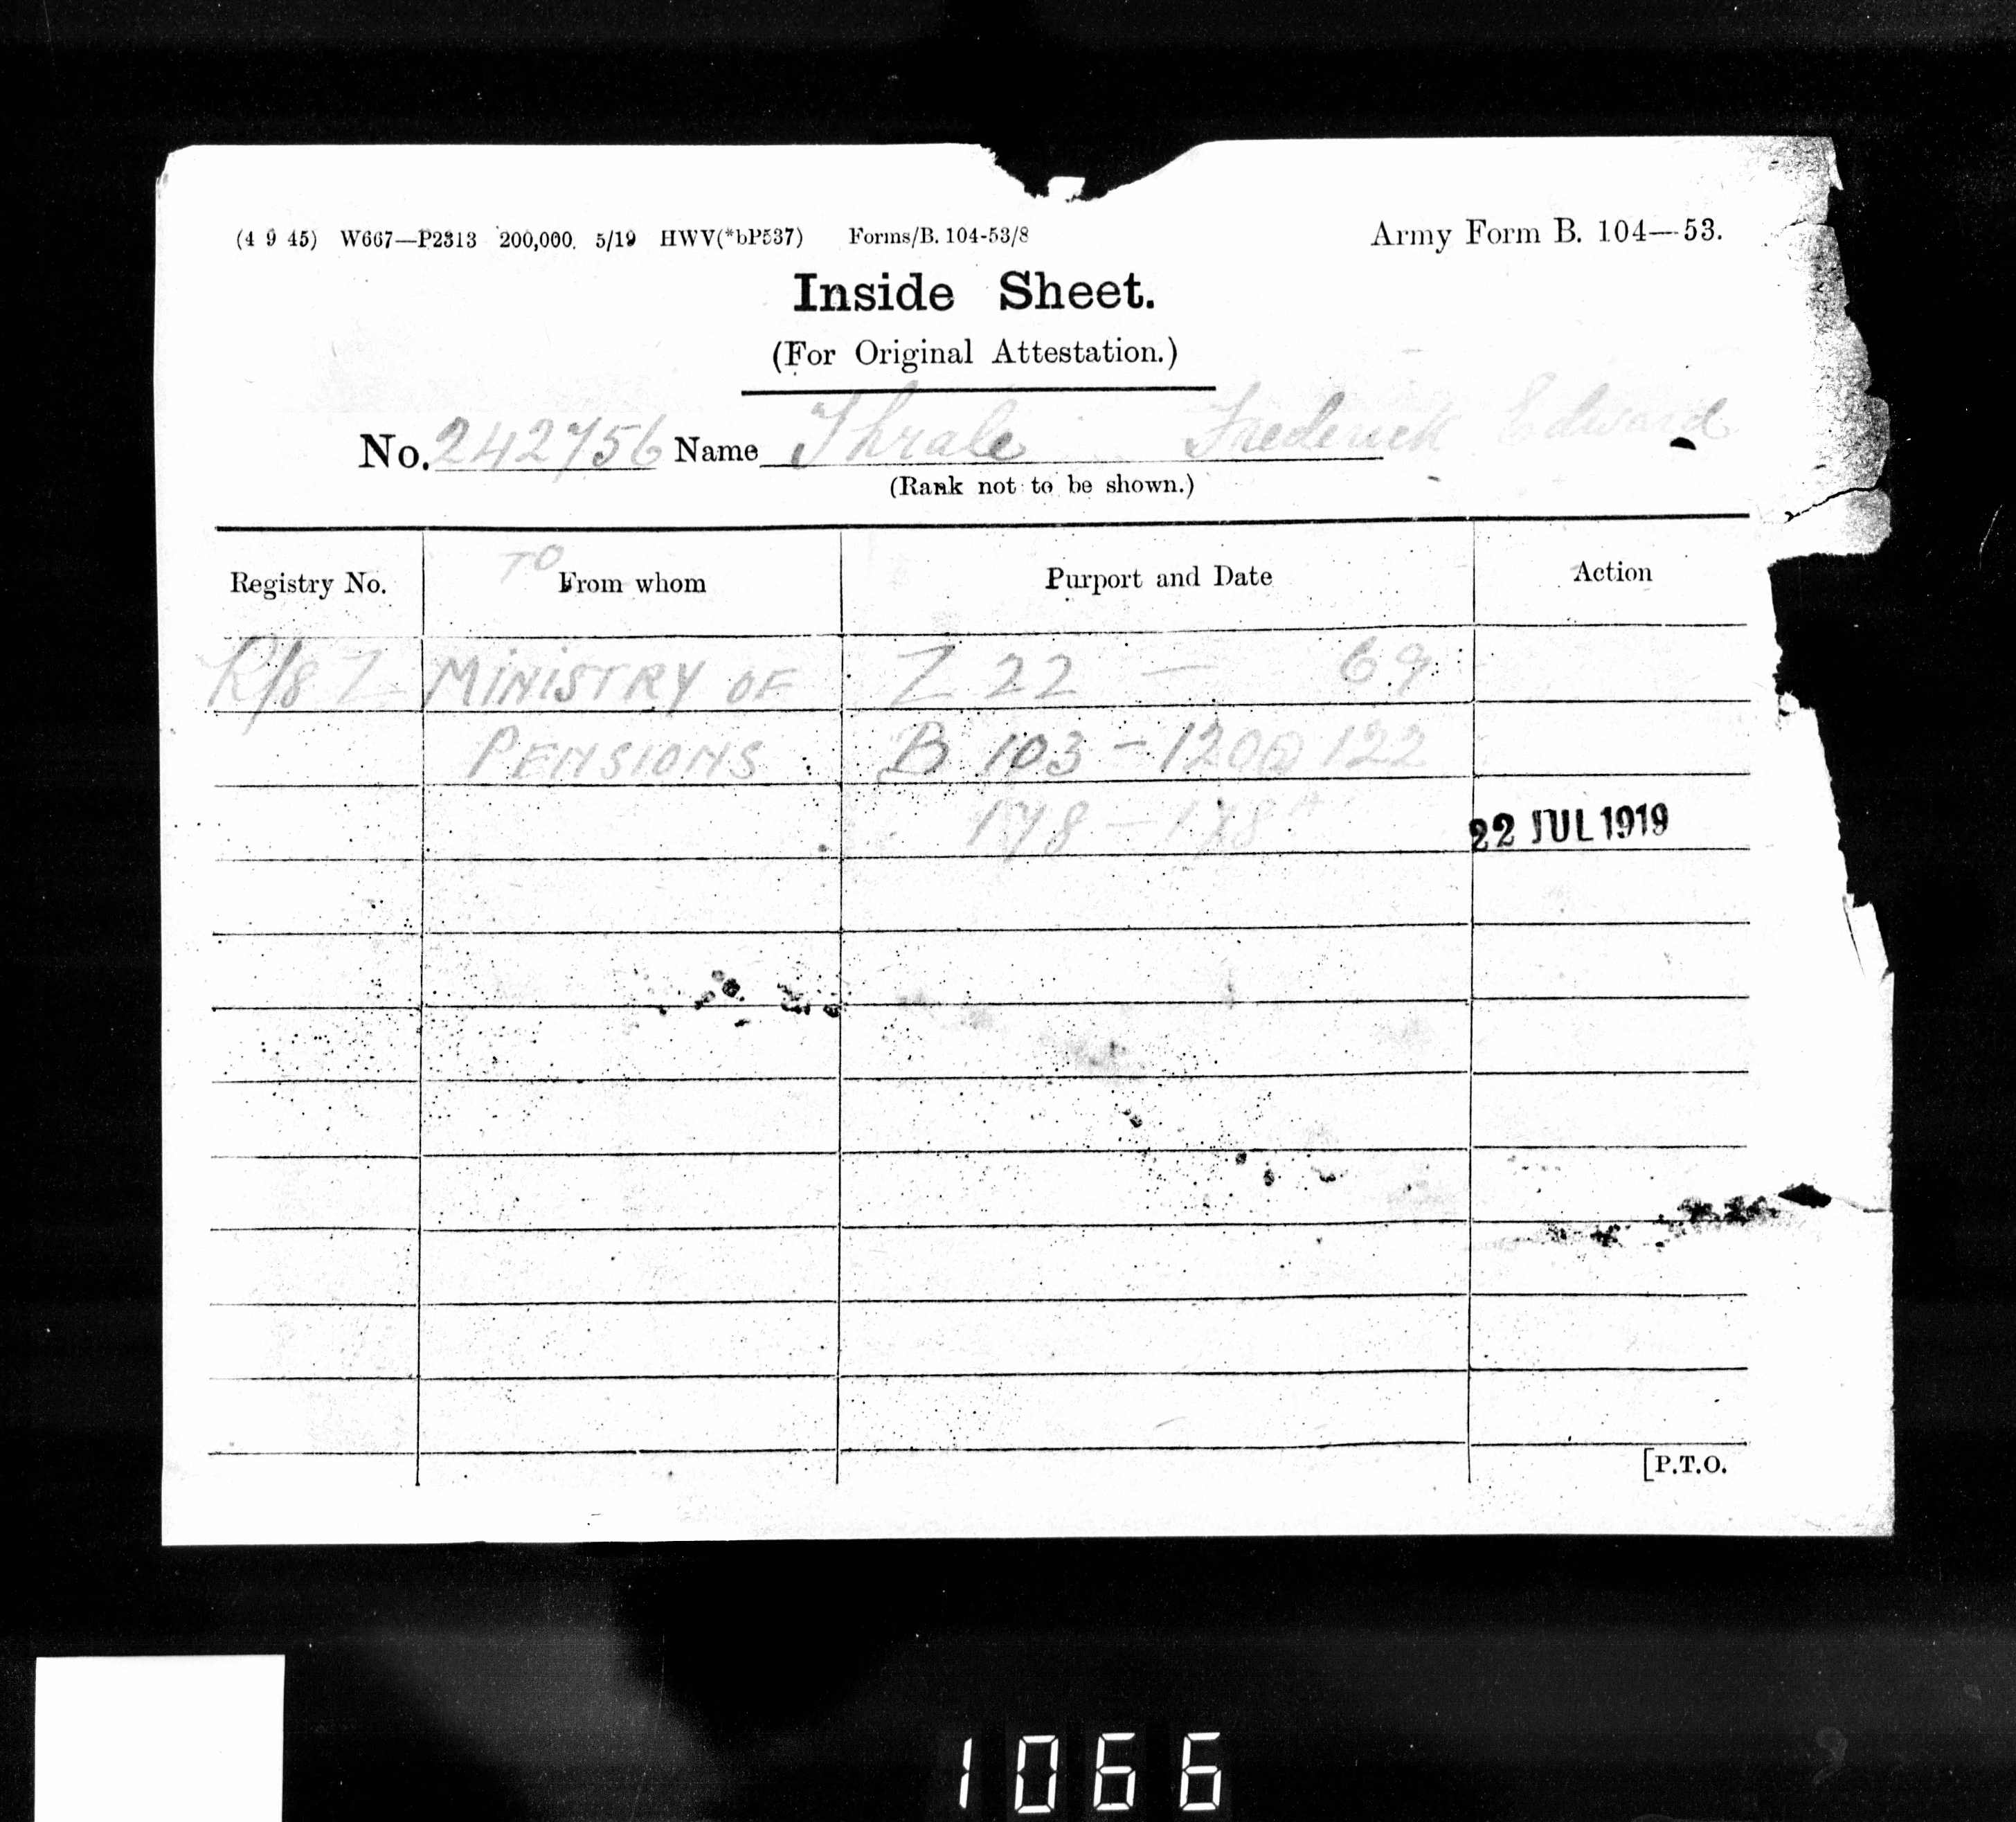 (4 9 45) W667—P2313 200,000. 5/19 HWV(*bP537) Forms/B. 104-53/8 Army Form B. 104—53.
Inside Sheet.
(For Original Attestation.)
No. 242756 Name Thrale Frederick Edward
(Rank not to be shown.)
TO
Registry No. From whom Purport and Date Action
R/8 Z MINISTRY OF Z 22 — 69
PENSIONS B 103 — 120 122
178 — 178A 22 JUL 1919
[P.T.O.
1066